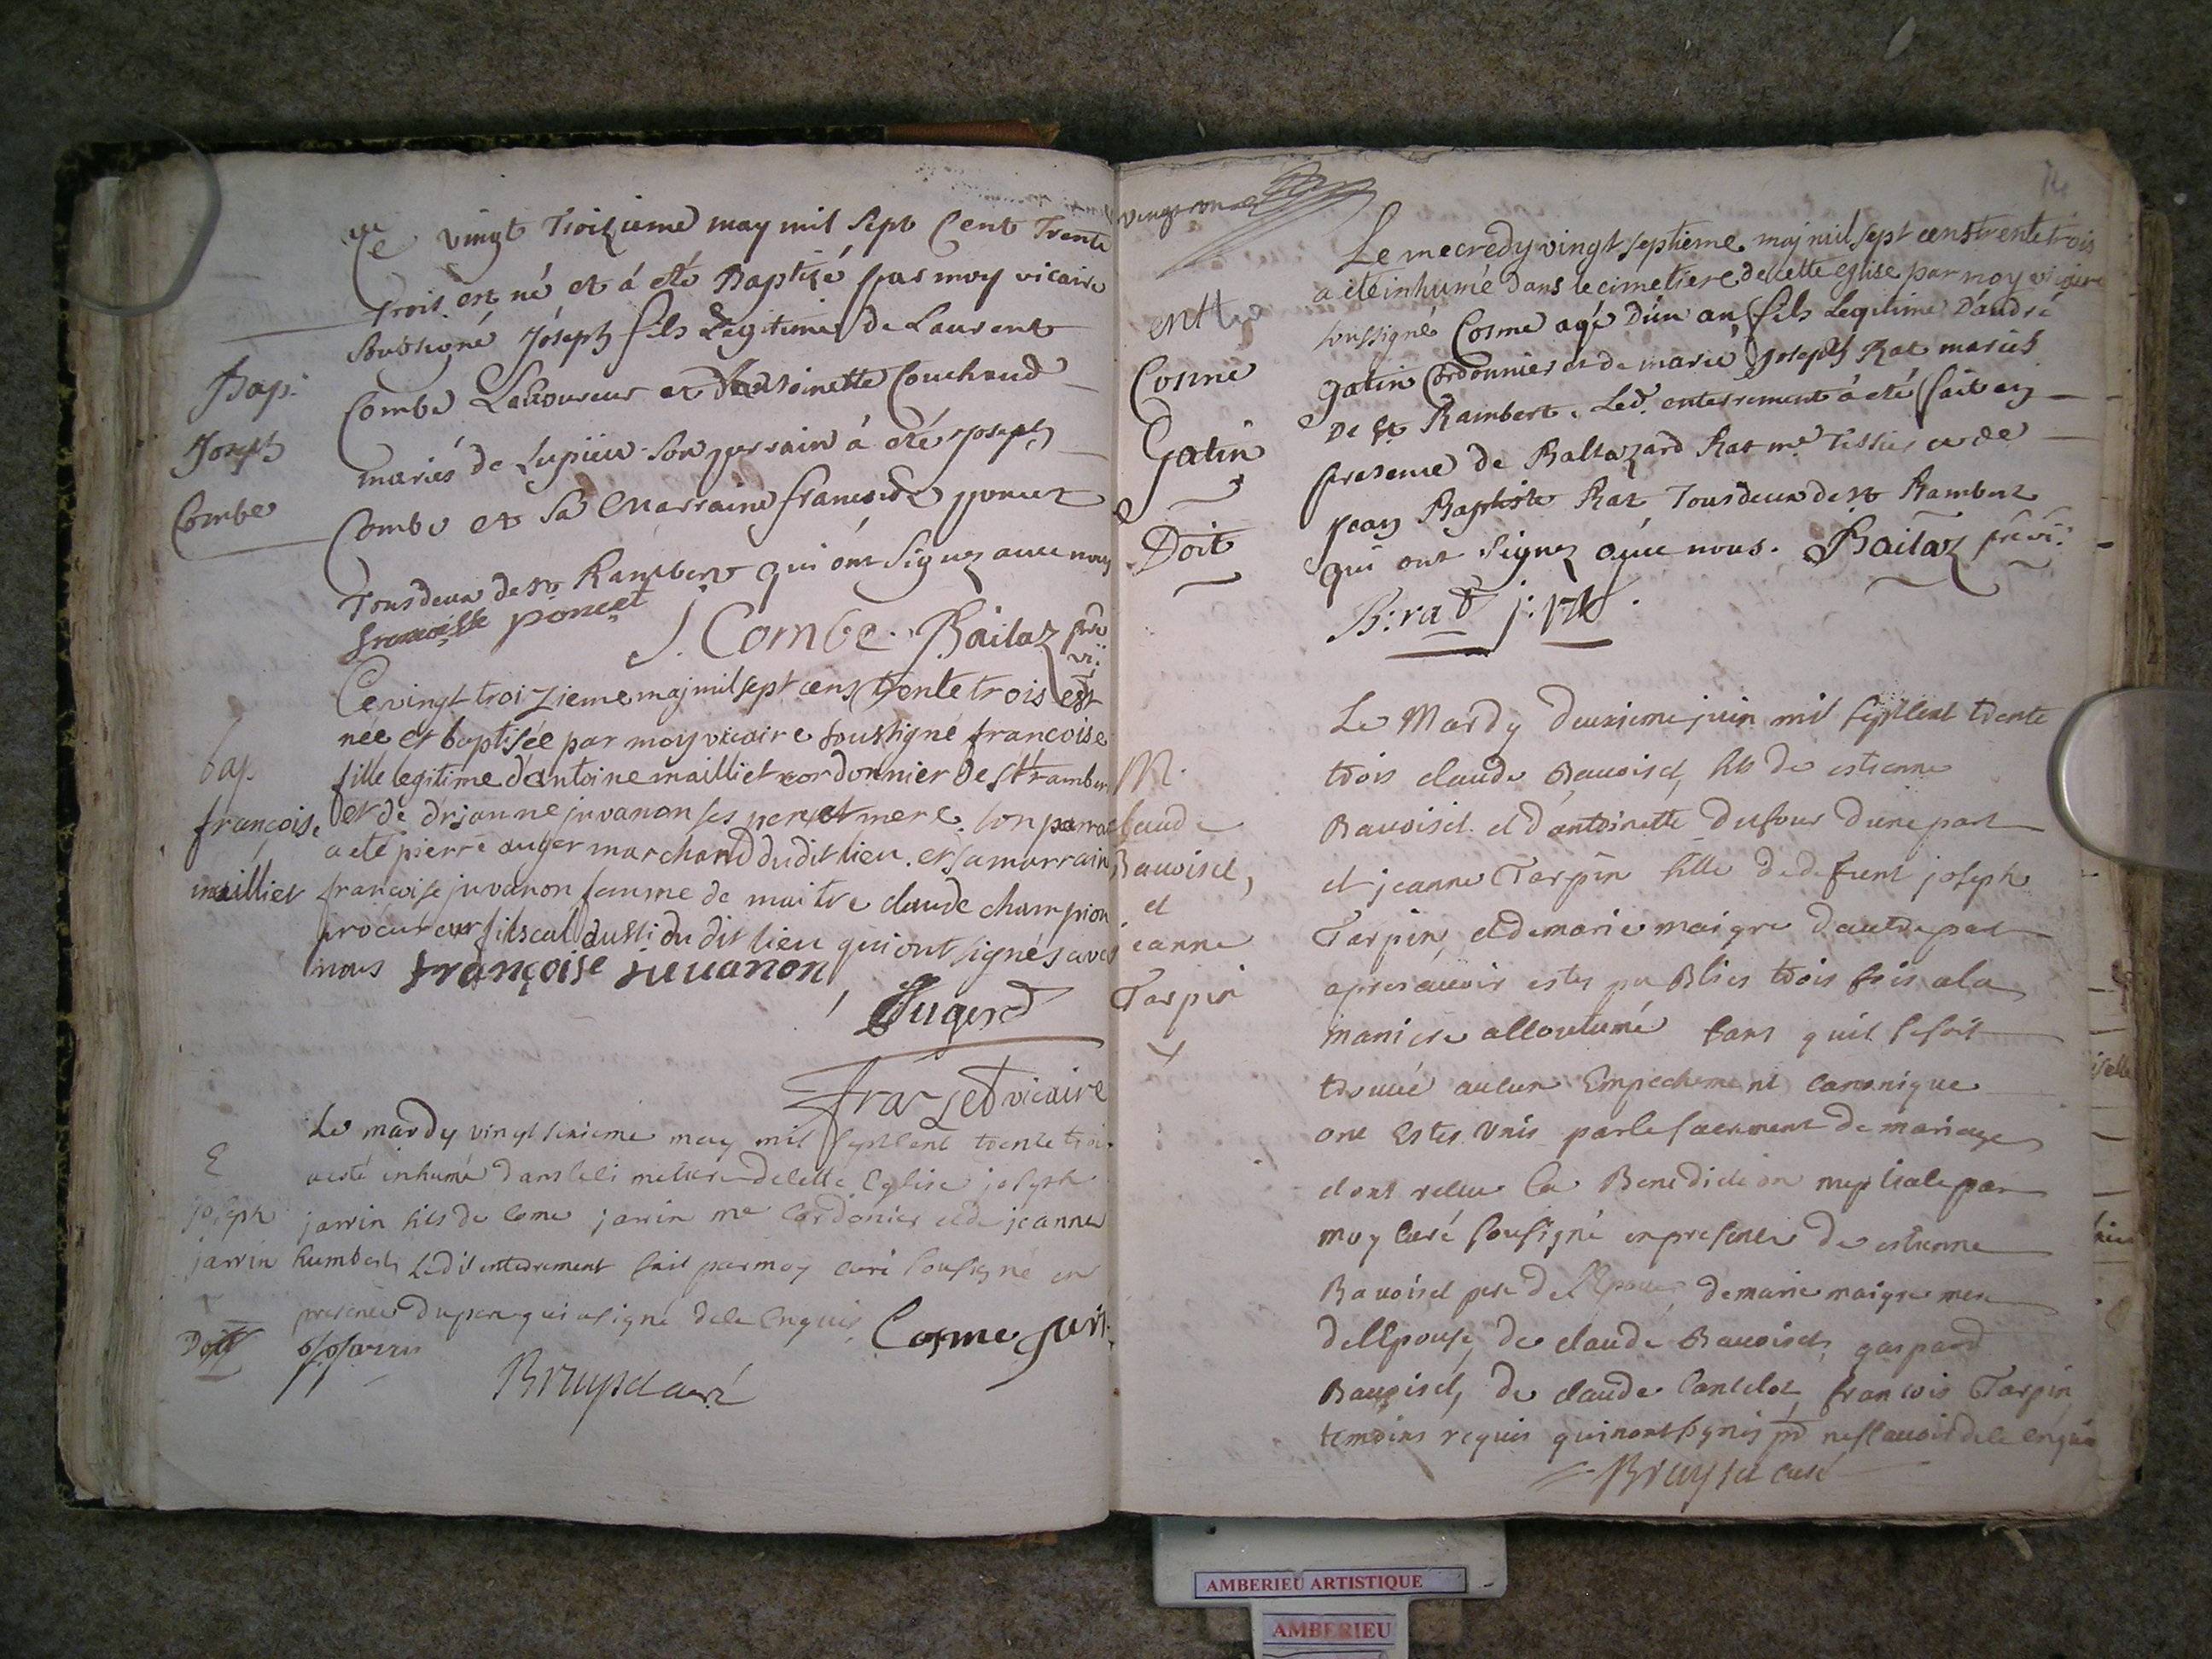 Ce vingt Troizieme may mil sept Cent Trente
Trois est né et à eté Baptizé par moy vicaire
Soussigné Joseph fils Legitime de Laurent
Bap:
Combe Laboureur et d'Antoinette Couchoud
Joseph
mariés de Lupieu son parrain à eté Joseph
Combe
Combe et sa Marraine francoise poncet
Tous deux de St Rambert qui ont signez avec nous
francoise poncet
J. Combe. Bailaz pre vi:
Ce vingt troizieme maj mil sept cens trente trois est
née et baptisée par moy vicaire soussigné francoise
bap.
fille legitime d'antoine mailliet cordonnier de st ramber
françoise
et de d. jeanne juvanon ses pere et mere. son parra
a eté pierre auger marchand dudit lieu. et sa marraine
mailliet
francoise juvanon femme de maitre claude champion
procureur fiscal aussi du dit lieu qui ont signés avec
nous françoise juuanon
Augerd
vicaire
Le mardy vingt sixieme may mil sept cent trente trois
E
a esté inhumé dans le cimetiere de cette Eglise joseph
joseph
jarrin fils de Come jarrin me Cordonier et de jeanne
jarrin
humbert, Ledit enterrement fait par moy curé sousigné en
presence du pere qui a signé de ce Enquis
Cosme jari.
Doit
Bruyset curé
vingt onze
14
Le mecredy vingt septieme maj mil sept cens trente trois
a eté inhumé dans le cimetiere de cette eglise par moy vicaire
soussigné Cosme agé D'un an fils Legitime D'andré
Cosme
gatin Cordonnier et de marie Joseph Rat mariés
De St Rambert. Led. enterrement à eté fait en
Gatin
presence de Baltazard Rat me Tissier et de
Jean Baptiste Rat Tous deux de St Rambert
Doit
qui ont signez avec nous. Bailaz pre vi:
B: rat j: r
Le Mardy deuxieme juin mil sept cent trente
M.
trois claude Bavoiset, fils de estienne
claude
Bavoiset et d'antoinette Dufour d'une part
Bavoiset,
et jeanne Tarpin fille de defunt joseph
et
Tarpin, et de marie maigre d'autre part
jeanne
apres avoir estes publies trois fois a la
Tarpin
maniere accoutumé sans quil se soit
trouvé aucun Empechement canonique
ont Estes Unis par le sacrement de mariage
et ont receu La Benediction nuptiale par
moy curé sousigné en presence de estienne
Bavoiset pere de l'Epoux de marie maigre mere
de l'Epouse, de claude Bavoiset, gaspard
Bavoiset, de claude Cantelot, francois Tarpin
temoins requis qui n'ont signés pr ne scavoir de ce enquis
Bruyset curé
AMBERIEU ARTISTIQUE
AMBERIEU